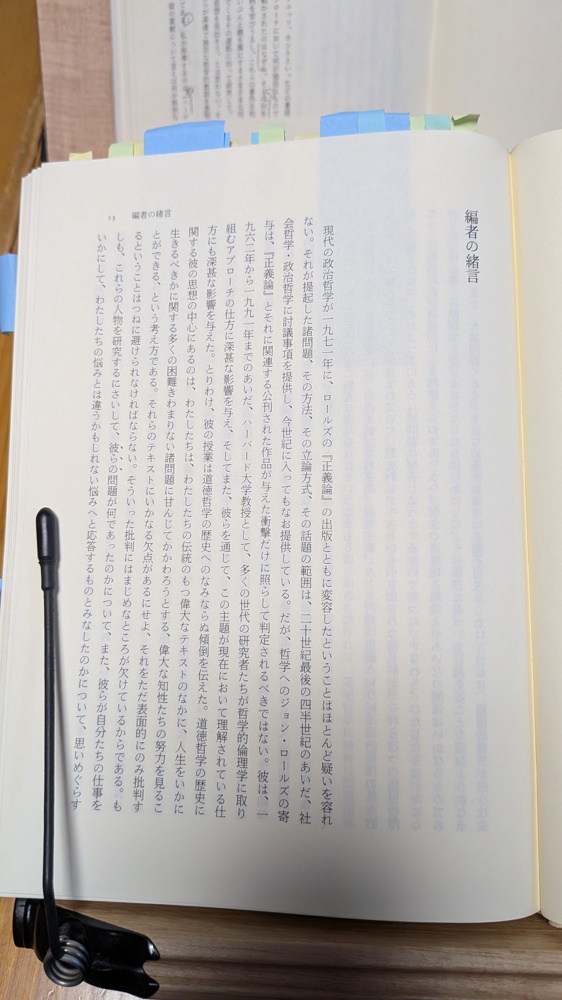 編者の緒言
現代の政治哲学が一九七一年に、ロールズの『正義論』の出版とともに変容したということはほとんど疑いを容れ
ない。それが提起した諸問題、その方法、その立論方式、その話題の範囲は、二十世紀最後の四半世紀のあいだ、社
会哲学・政治哲学に討議事項を提供し、今世紀に入ってもなお提供している。だが、哲学へのジョン・ロールズの寄
与は、『正義論』とそれに関連する公刊された作品が与えた衝撃だけに照らして判定されるべきではない。彼は、一
九六二年から一九九一年までのあいだ、ハーバード大学教授として、多くの世代の研究者たちが哲学的倫理学に取り
組むアプローチの仕方に深甚な影響を与え、そしてまた、彼らを通じて、この主題が現在において理解されている仕
方にも深甚な影響を与えた。とりわけ、彼の授業は道徳哲学の歴史へのなみならぬ傾倒を伝えた。道徳哲学の歴史に
関する彼の思想の中心にあるのは、わたしたちは、わたしたちの伝統のもつ偉大なテキストのなかに、人生をいかに
生きるべきかに関する多くの困難きわまりない諸問題に甘んじてかかわろうとする、偉大な知性たちの努力を見るこ
とができる、という考え方である。それらのテキストにいかなる欠点があるにせよ、それをただ表面的にのみ批判す
るということはつねに避けられなければならない。そういった批判にはまじめなところが欠けているからである。も
しも、これらの人物を研究するにさいして、彼らの問題が何であったのかについて、また、彼らが自分たちの仕事を
いかにして、わたしたちの悩みとは違うかもしれない悩みへと応答するものとみなしたのかについて、思いめぐらす
13 編者の緒言